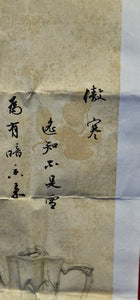 傲寒
遙知不是雪
為有暗香来